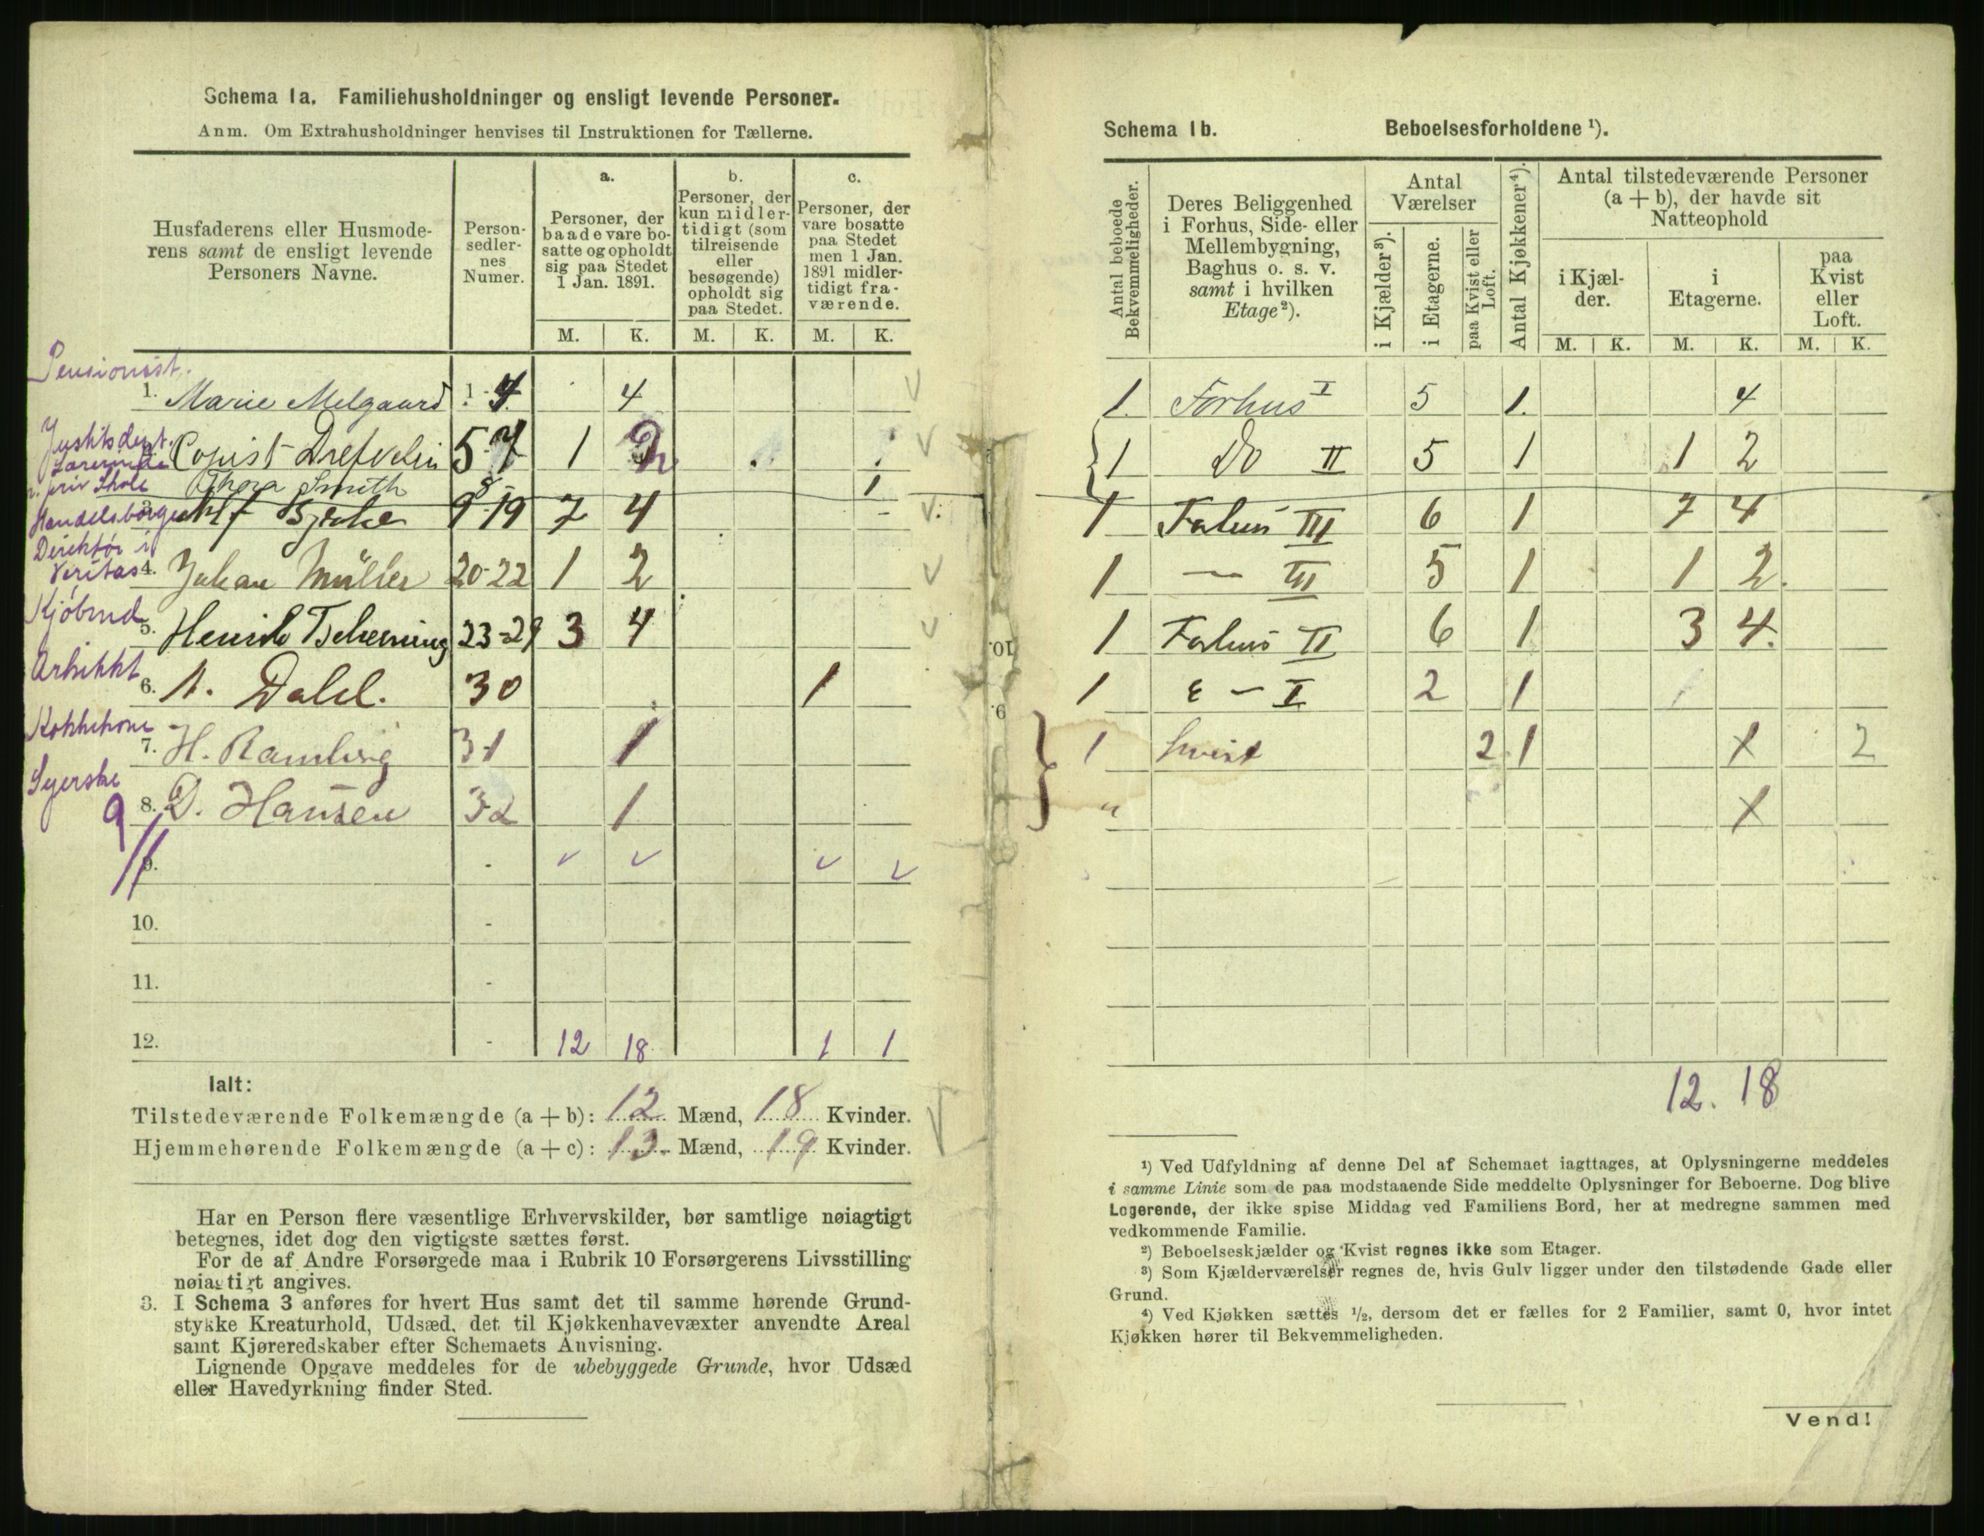 Schema 1a. Familiehusholdninger og ensligt levende Personer.
Anm. Om Extrahusholdninger henvises til Instruktionen for Tællerne.
Husfaderens eller Husmoderens samt de ensligt levende Personers Navne.
Person-sedlernes Numer.
a. Personer, der baade vare bosatte og opholdt sig paa Stedet 1 Jan. 1891.
b. Personer, der kun midlertidigt (som tilreisende eller besøgende) opholdt sig paa Stedet.
c. Personer, der vare bosatte paa Stedet men 1 Jan. 1891 midlertidigt fraværende.
M. K. M. K. M. K.
Pensionist.
1. Marie Melgaard 1-4 4
Justitsdept.
Copist Drefvelin 5-7 1 2
Lærerinde
v. priv Skole Thora Smith 8 1
Handelsborger
3. Bjerke 9-19 7 4
Direktør i
Veritas 4. Johan Müller 20-22 1 2
Kjøbmd
5. Henrik Tscherning 23-29 3 4
Arkitekt
6. A. Dahl. 30 1
Kokkekone
7. H. Ramberg 31 1
Syerske
8. D. Hansen 32 1
9
9. -
10. -
11. -
12. - 12 18 1 1
Ialt:
Tilstedeværende Folkemængde (a + b): 12 Mænd, 18 Kvinder.
Hjemmehørende Folkemængde (a + c): 13 Mænd, 19 Kvinder.
Har en Person flere væsentlige Erhvervskilder, bør samtlige nøiagtigt
betegnes, idet dog den vigtigste sættes først.
For de af Andre Forsørgede maa i Rubrik 10 Forsørgerens Livsstilling
nøiagtigt angives.
3. I Schema 3 anføres for hvert Hus samt det til samme hørende Grund-
stykke Kreaturhold, Udsæd, det til Kjøkkenhavevæxter anvendte Areal
samt Kjøreredskaber efter Schemaets Anvisning.
Lignende Opgave meddeles for de ubebyggede Grunde, hvor Udsæd
eller Havedyrkning finder Sted.
10.
9.
Schema 1b. Beboelsesforholdene ¹).
Antal beboede Bekvemmeligheder.
Deres Beliggenhed i Forhus, Side- eller Mellembygning, Baghus o. s. v. samt i hvilken Etage ²).
Antal Værelser
i Kjælder ³).
i Etagerne.
paa Kvist eller Loft.
Antal Kjøkkener ⁴).
Antal tilstedeværende Personer (a + b), der havde sit Natteophold
i Kjælder.
i Etagerne.
paa Kvist eller Loft.
M. K. M. K. M. K.
1. Forhus I 5 1. 4
1 Do II 5 1 1 2
1 Forhus III 6 1 7 4
1 — III 5 1 1 2.
1 Forhus II 6 1 3 4.
1 — I 2 1
1 Kvist 2 1 2
"
12. 18
¹) Ved Udfyldning af denne Del af Schemaet iagttages, at Oplysningerne meddeles
i samme Linie som de paa modstaaende Side meddelte Oplysninger for Beboerne. Dog blive
Logerende, der ikke spise Middag ved Familiens Bord, her at medregne sammen med
vedkommende Familie.
²) Beboelseskjælder og Kvist regnes ikke som Etager.
³) Som Kjælderværelser regnes de, hvis Gulv ligger under den tilstødende Gade eller
Grund.
⁴) Ved Kjøkken sættes ½, dersom det er fælles for 2 Familier, samt 0, hvor intet
Kjøkken hører til Bekvemmeligheden.
Vend!